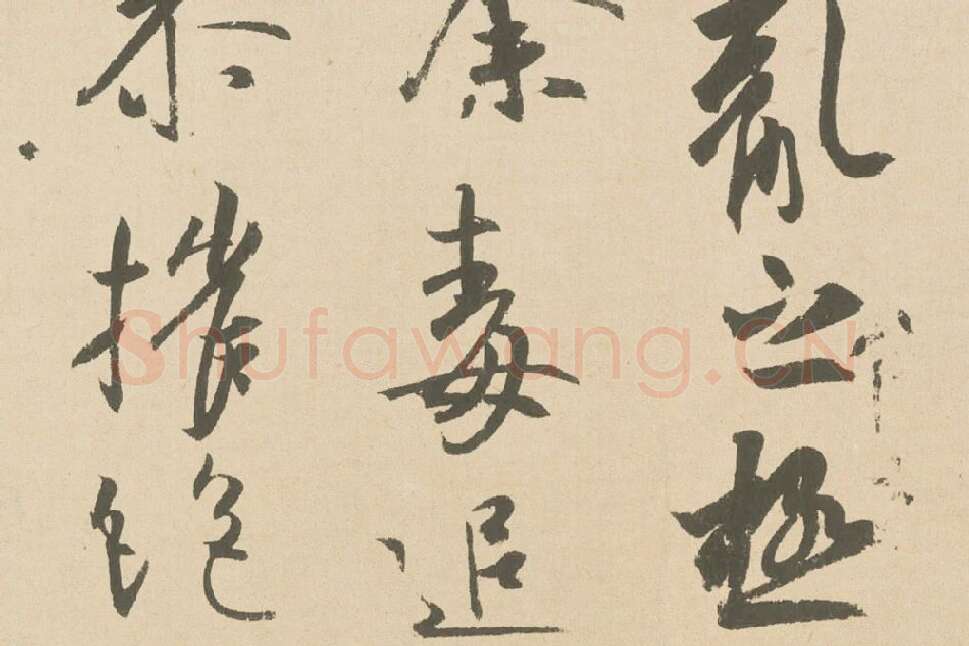 亂之極
荼毒追
慕摧絕
Shufawang.CN